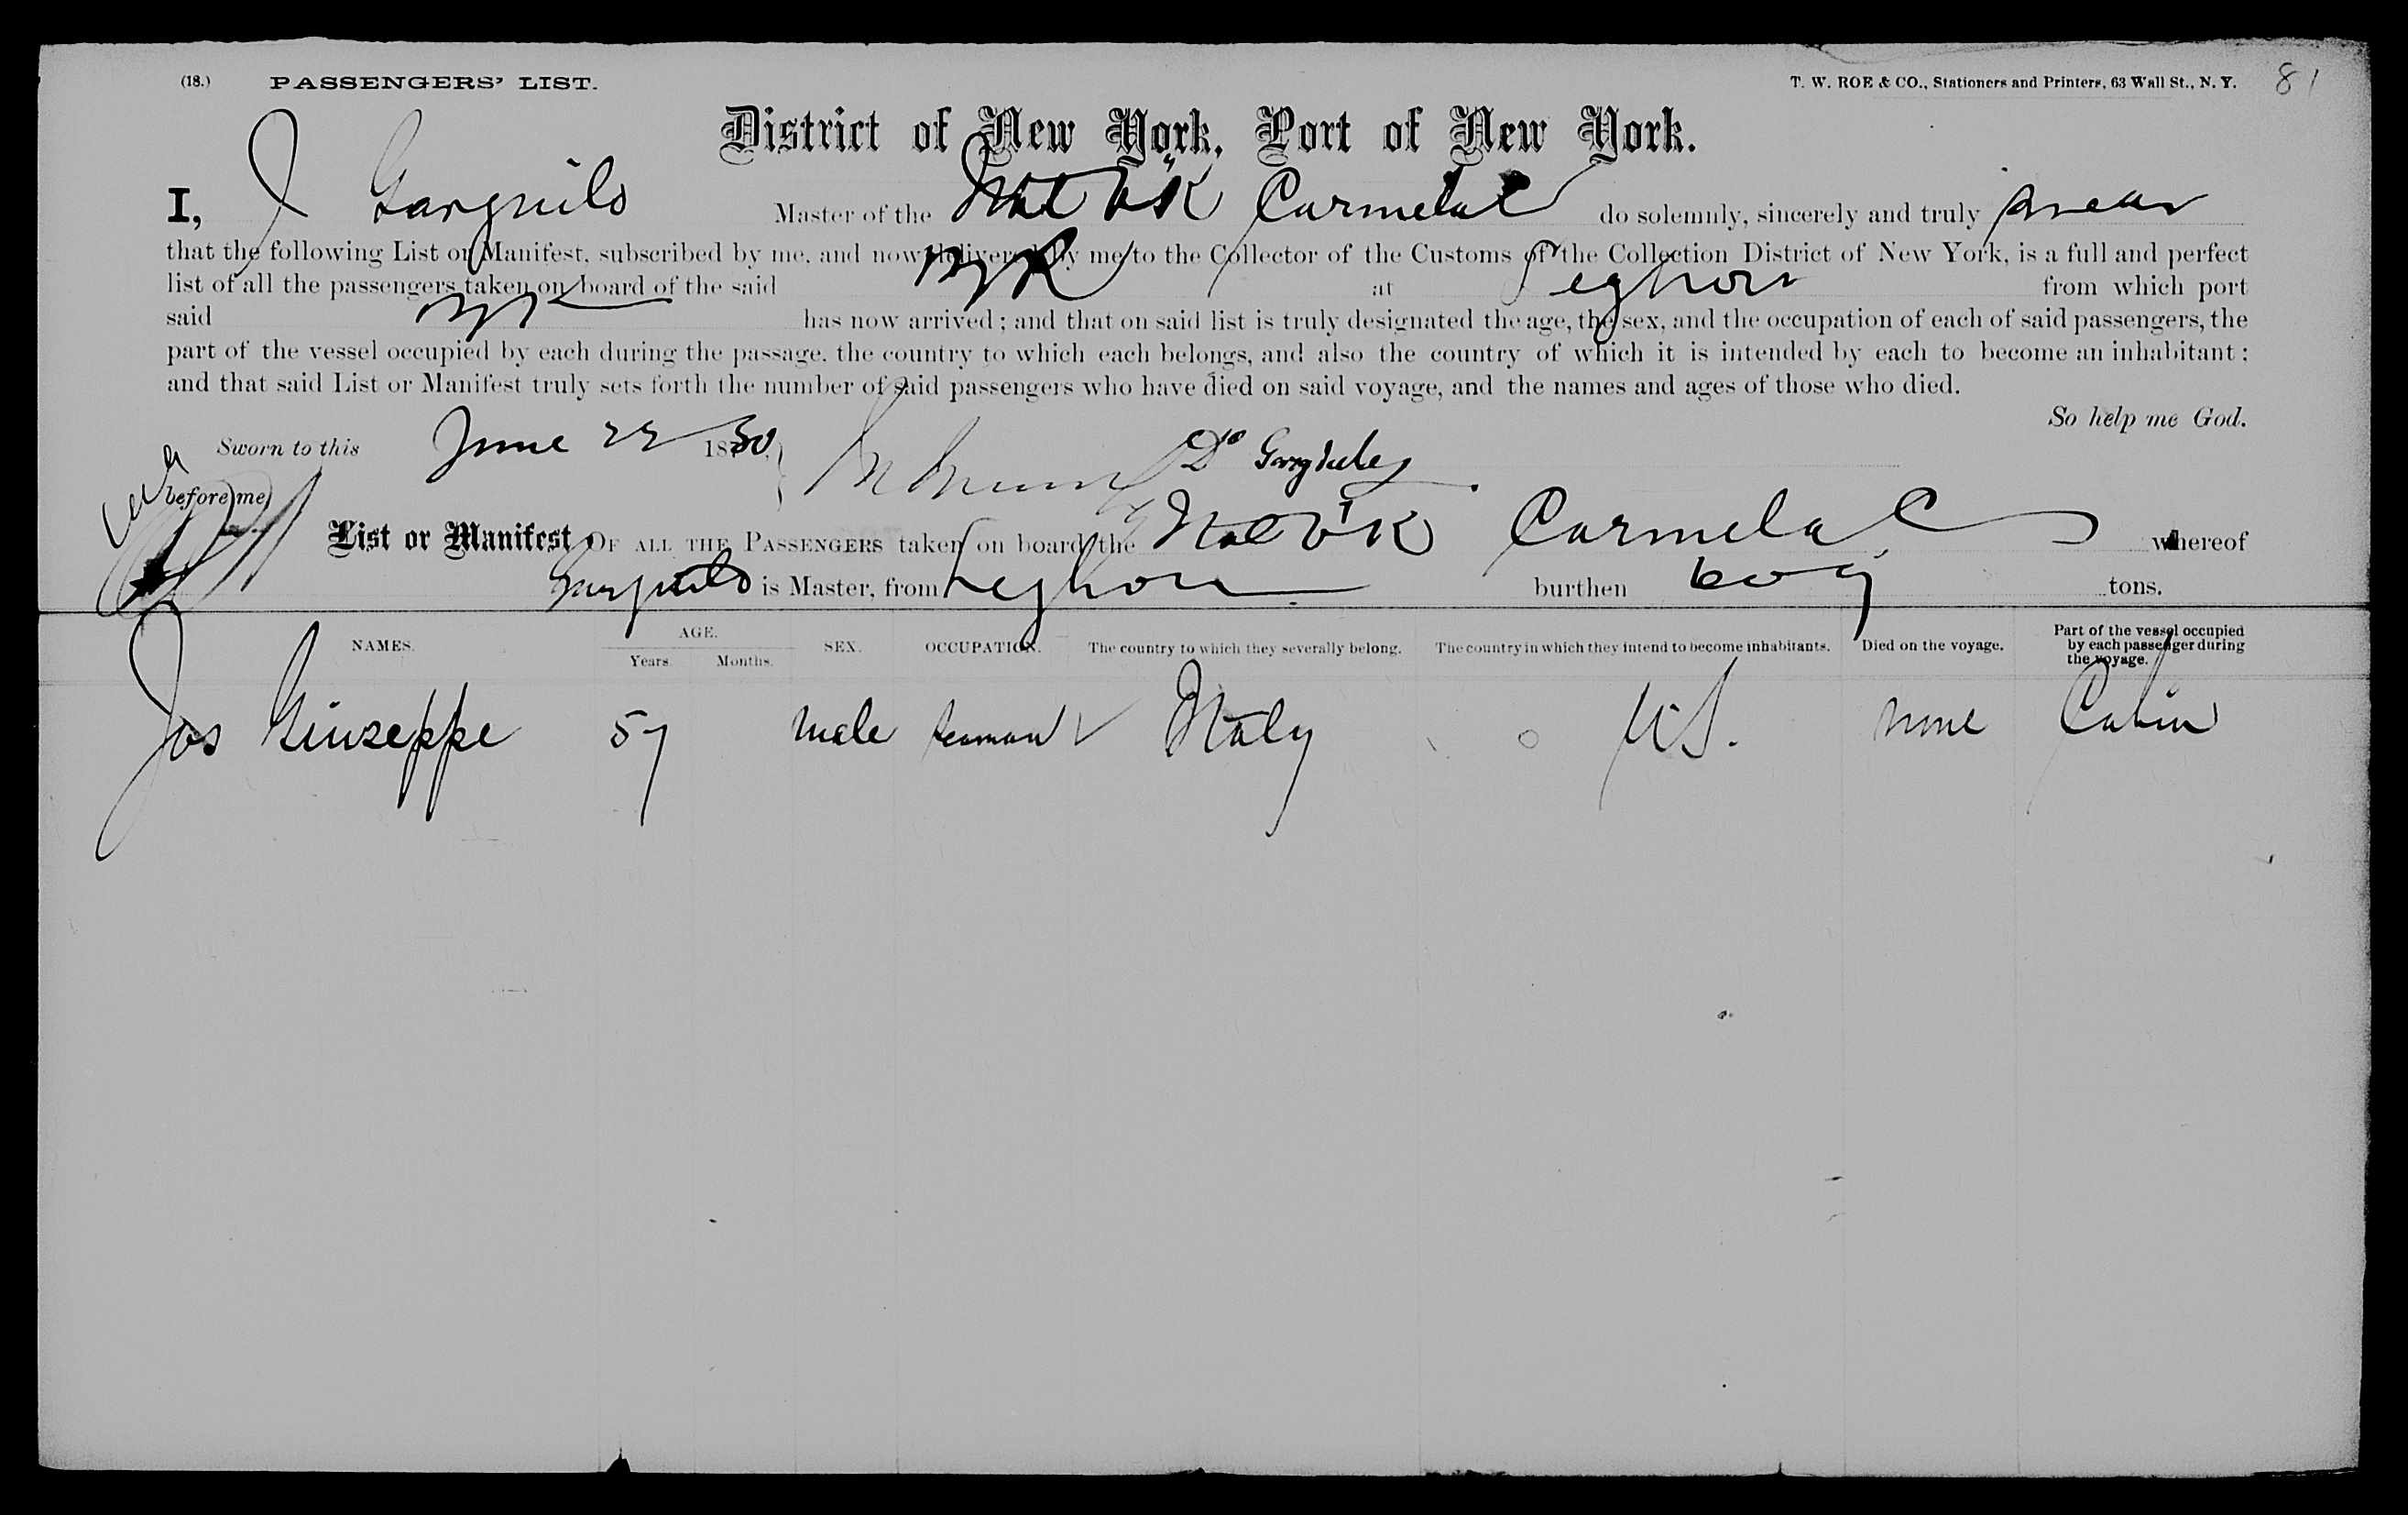 (18.) PASSENGERS' LIST. T. W. ROE & CO., Stationers and Printers, 63 Wall St., N. Y. 81
District of New York, Port of New York.
I, J Garguilo Master of the Ital Bk Carmela C do solemnly, sincerely and truly swear
that the following List or Manifest, subscribed by me, and now delivered by me to the Collector of the Customs of the Collection District of New York, is a full and perfect
list of all the passengers taken on board of the said Bk at Leghorn from which port
said Bk has now arrived; and that on said list is truly designated the age, the sex, and the occupation of each of said passengers, the
part of the vessel occupied by each during the passage, the country to which each belongs, and also the country of which it is intended by each to become an inhabitant;
and that said List or Manifest truly sets forth the number of said passengers who have died on said voyage, and the names and ages of those who died.
So help me God.
Sworn to this June 22 1880
before me
List or Manifest OF ALL THE PASSENGERS taken on board the Ital Bk Carmela C whereof
Garguilo is Master, from Leghorn burthen tons.
NAMES. AGE. Years. Months. SEX. OCCUPATION. The country to which they severally belong. The country in which they intend to become inhabitants. Died on the voyage. Part of the vessel occupied by each passenger during the voyage.
Jos Giuseppe 57 male seaman Italy U.S. none Cabin